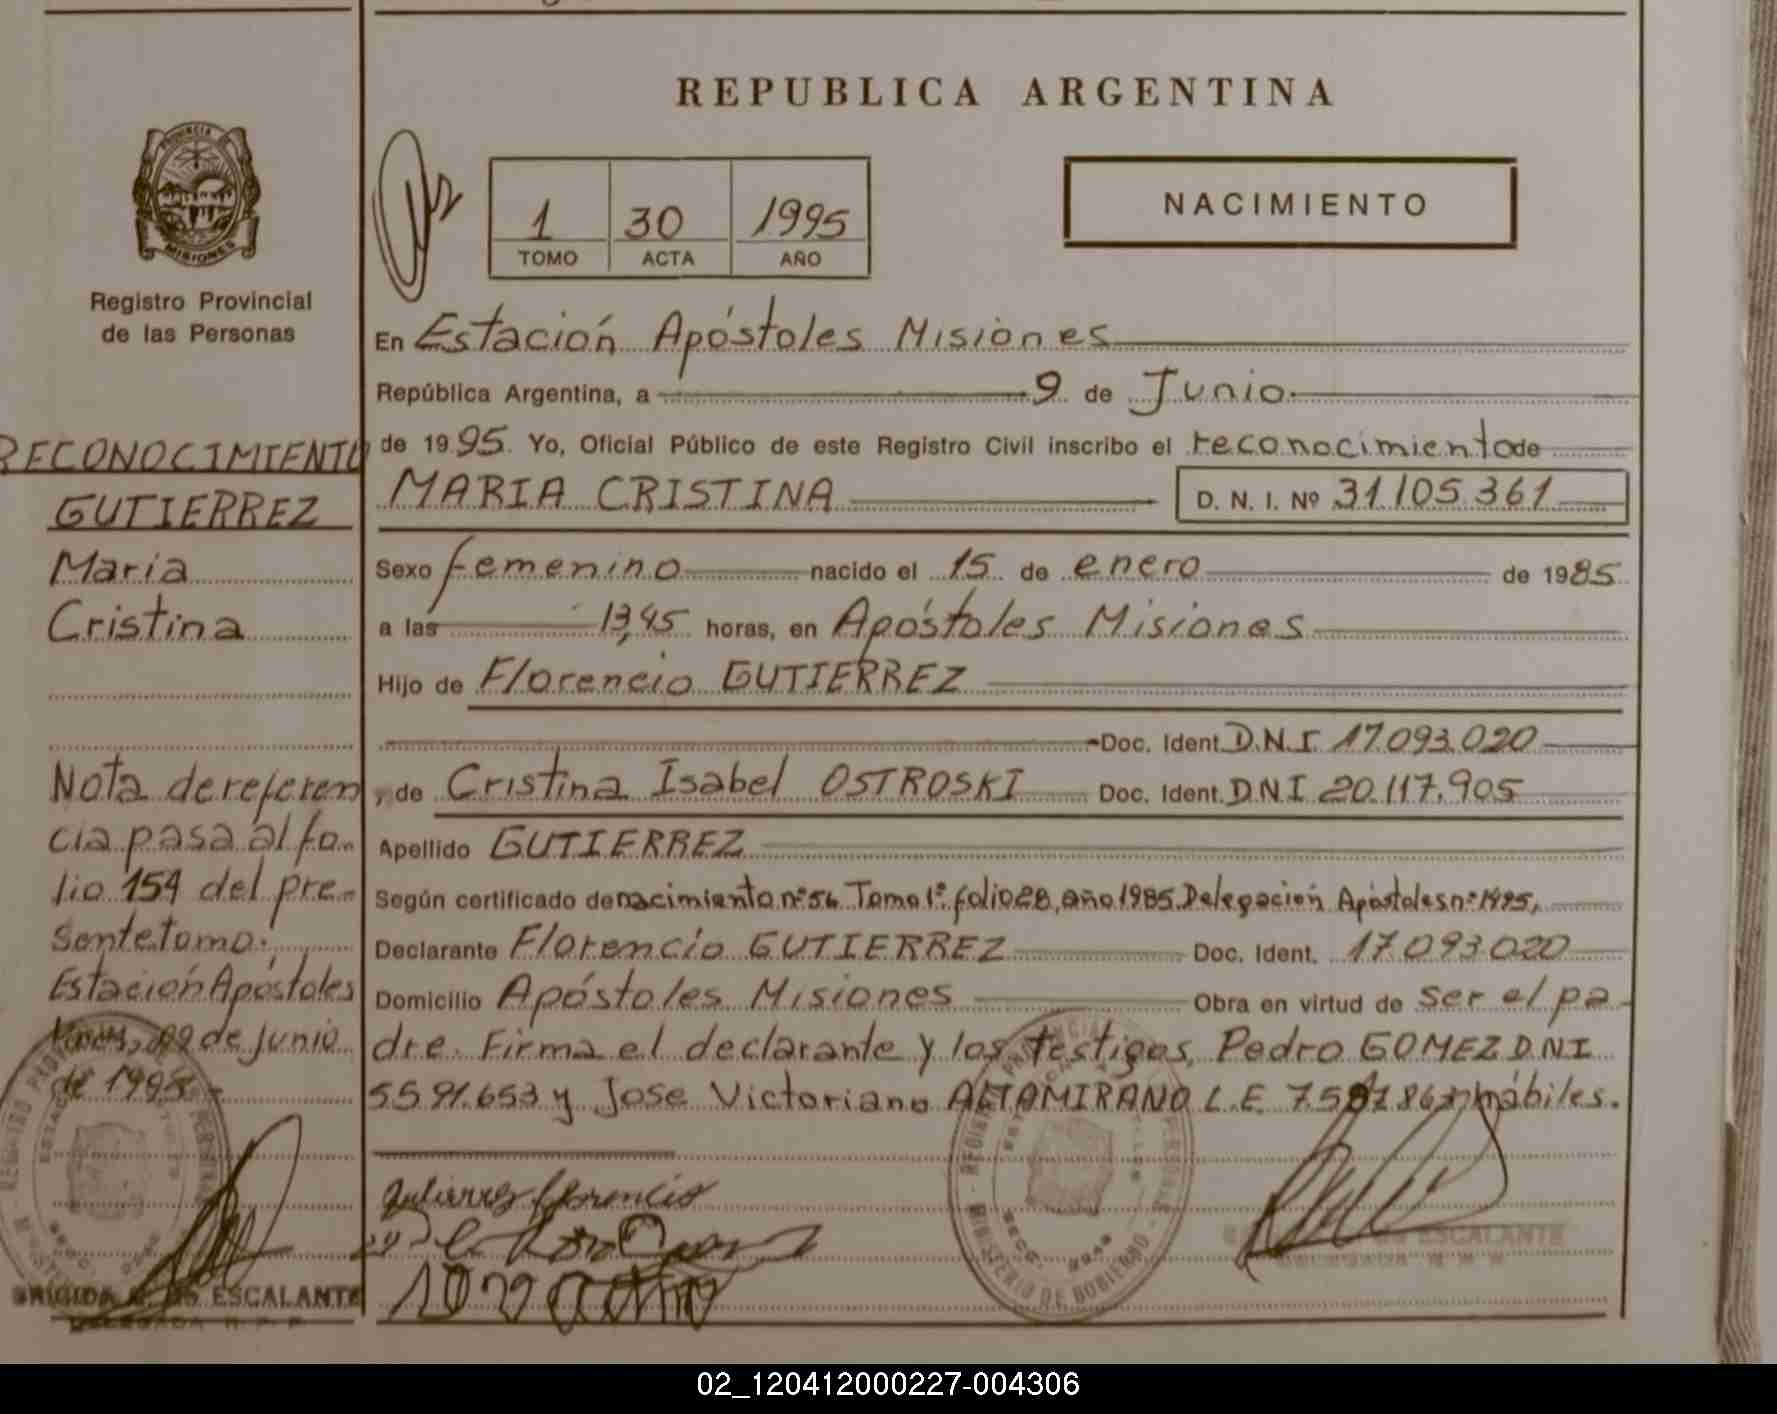 REPUBLICA ARGENTINA
PROVINCIA DE
MISIONES
Registro Provincial
de las Personas
1 30 1995
TOMO ACTA AÑO
NACIMIENTO
En Estación Apóstoles Misiones
República Argentina, a 9 de Junio
de 1995. Yo, Oficial Público de este Registro Civil inscribo el reconocimiento de
MARIA CRISTINA D. N. I. Nº 31.105.361
Sexo femenino nacido el 15 de enero de 1985
a las 13,45 horas, en Apóstoles Misiones
Hijo de Florencio GUTIERREZ
Doc. Ident. D.N.I. 17.093.020
y de Cristina Isabel OSTROSKI Doc. Ident. D.N.I 20.117.905
Apellido GUTIERREZ
Según certificado de nacimiento nº 56 Tomo 1º folio 28, año 1985 Delegación Apóstoles nº 1495,
Declarante Florencio GUTIERREZ Doc. Ident. 17.093.020
Domicilio Apóstoles Misiones Obra en virtud de ser el pa-
dre. Firma el declarante y los testigos, Pedro GOMEZ DNI
5.591.653 y Jose Victoriano ALTAMIRANO L.E. hábiles.
Gutierrez florencio
RECONOCIMIENTO
GUTIERREZ
Maria
Cristina
Nota de referen
cia pasa al fo-
lio 154 del pre-
sente tomo.
Estación Apóstoles
09 de junio
de 1995.-
BRIGIDA DE ESCALANTE
DELEGADA R. P. P.
ESCALANTE
02_120412000227-004306